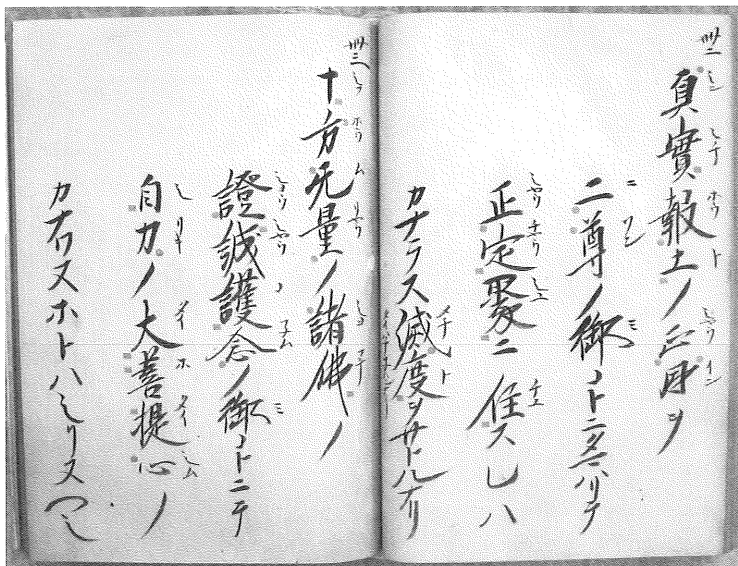 真實報土ノ正因ヲ
二尊ノ御コトニタマハリテ
正定聚ニ住スレハ
カナラス滅度ヲサトルナリ
十方无量ノ諸佛ノ
證誠護念ノ御コトニテ
自力ノ大菩提心ノ
カナワヌホトハシリヌヘシ